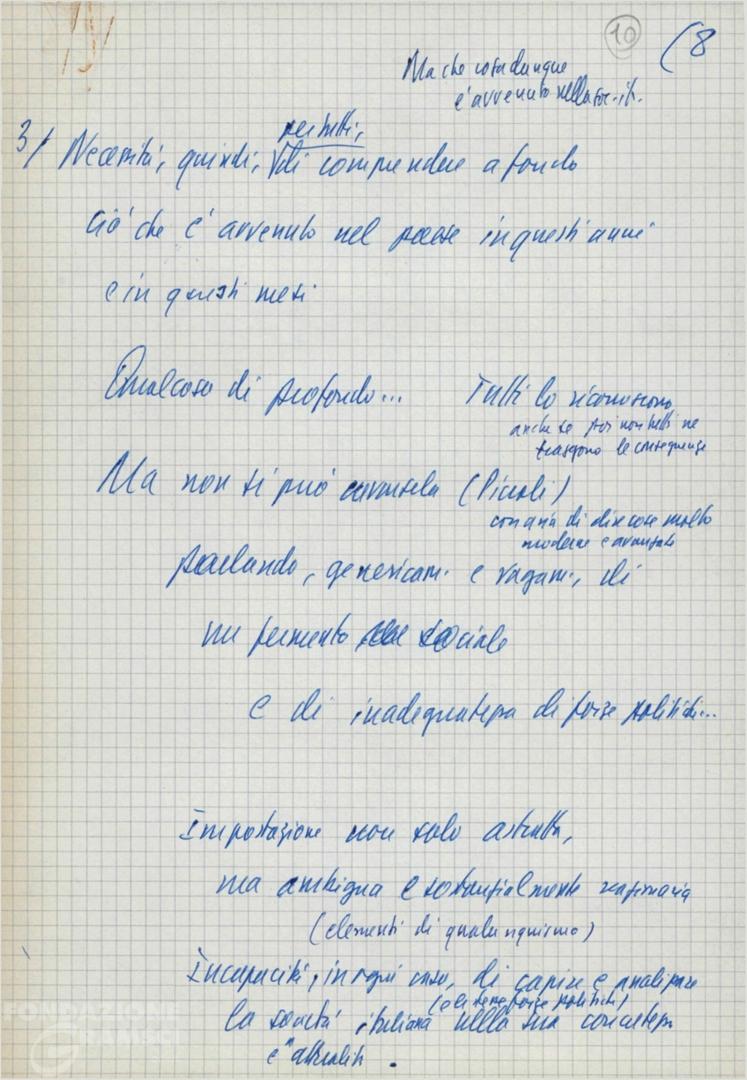 10
(8
Ma che cosa dunque
è avvenuto nella soc. it.
3/ Necessità, quindi, per tutti, di comprendere a fondo
ciò che è avvenuto nel paese in questi anni
e in questi mesi
Qualcosa di profondo... Tutti lo riconoscono
anche se poi non tutti ne
traggono le conseguenze
Ma non si può cavarsela (Piccoli)
con aria di dire cose molto
moderne e avanzate
parlando, genericam. e vagam., di
un fermento sociale
e di inadeguatezza di forze politich...
Impostazione non solo astratta,
ma ambigua e sostanzialmente reazionaria
(elementi di qualunquismo)
Incapacità, in ogni caso, di capire e analizzare
(e le stesse forze politiche)
la società italiana nella sua concretezza
e attualità.
FONDAZIONE
GRAMSCI